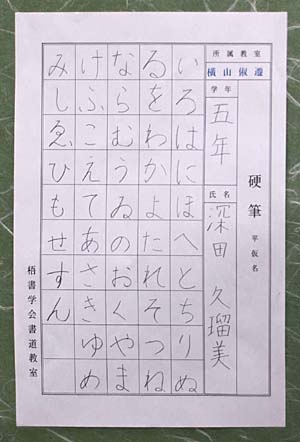 硬筆 平仮名
所属教室
横山
学年
五年
氏名
深田 久瑠美
いろはにほへとちりぬ
るをわかよたれそつね
ならむうゐのおくやま
けふこえてあさきゆめ
みしゑひもせすん
梧書学会書道教室